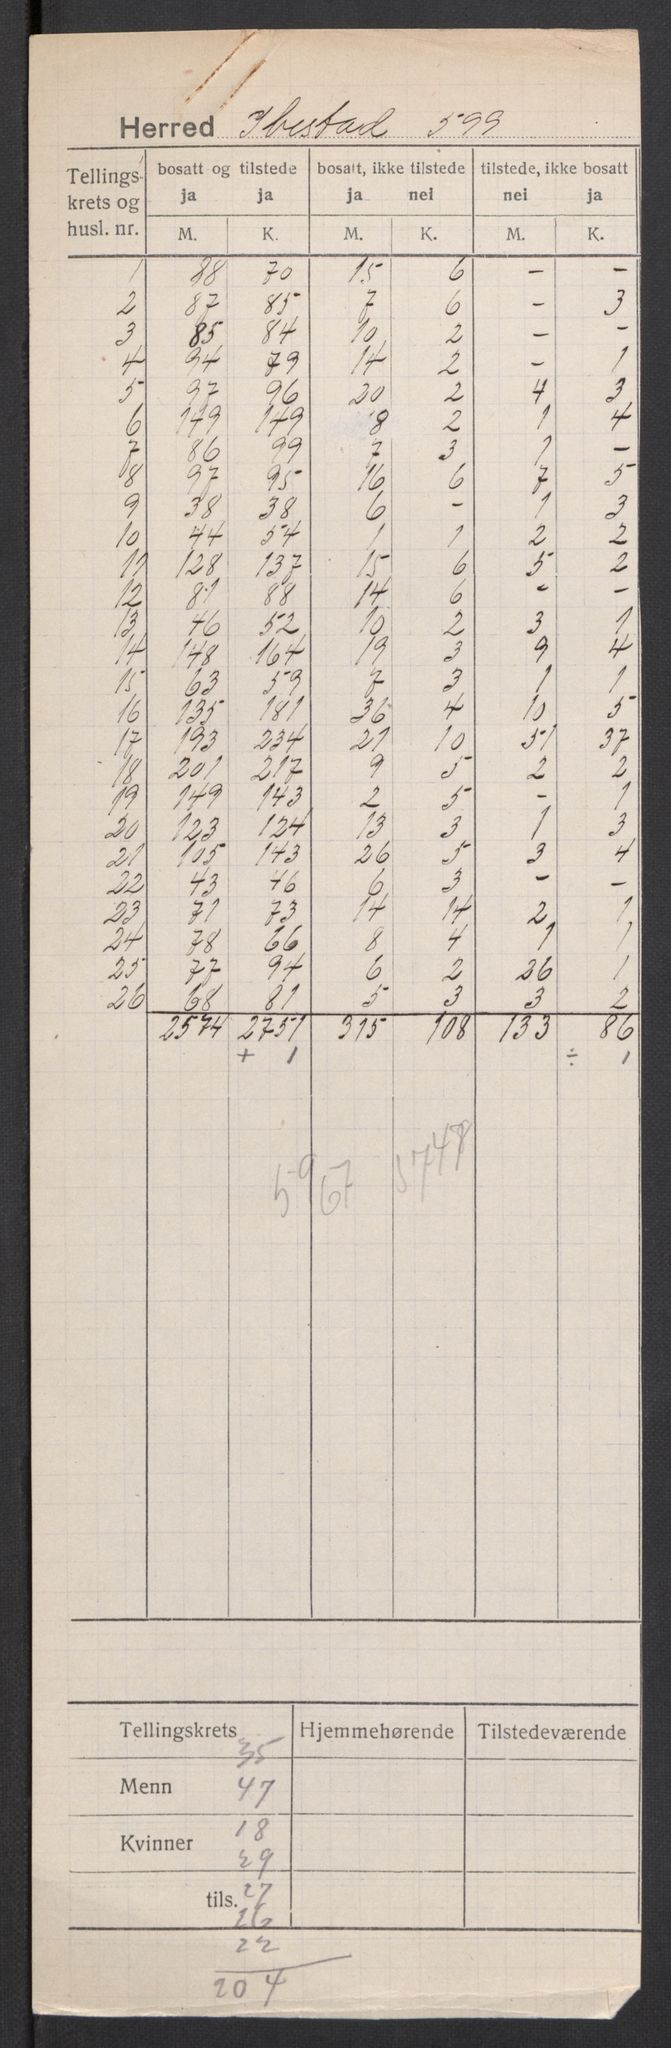 Herred Ibestad 599
Tellings- krets og husl. nr. bosatt og tilstede bosatt, ikke tilstede tilstede, ikke bosatt
ja ja ja nei nei ja
M. K. M. K. M. K.
1 88 70 15 6 – –
2 87 85 7 6 – 3
3 85 84 10 2 – –
4 94 79 14 2 – 1
5 97 96 20 2 4 3
6 149 149 8 2 1 4
7 86 99 7 3 1 –
8 97 95 16 6 7 5
9 38 38 6 – 1 3
10 44 54 1 1 2 2
11 128 137 15 6 5 2
12 81 88 14 6 – –
13 46 52 10 2 3 1
14 148 164 19 3 9 4
15 63 59 7 3 1 1
16 135 181 36 4 10 5
17 193 234 21 10 51 37
18 201 217 9 5 2 2
19 149 143 2 5 – 1
20 123 124 13 3 1 3
21 105 143 26 5 3 4
22 43 46 6 3 – –
23 71 73 14 14 2 1
24 78 66 8 4 1 1
25 77 94 6 2 26 1
26 68 81 5 3 3 2
2574 2751 315 108 133 86
+ 1 ÷ 1
5967 5748
Tellingskrets Hjemmehørende Tilstedeværende
35
Menn 47
18
Kvinner 29
tils. 27
26
22
204